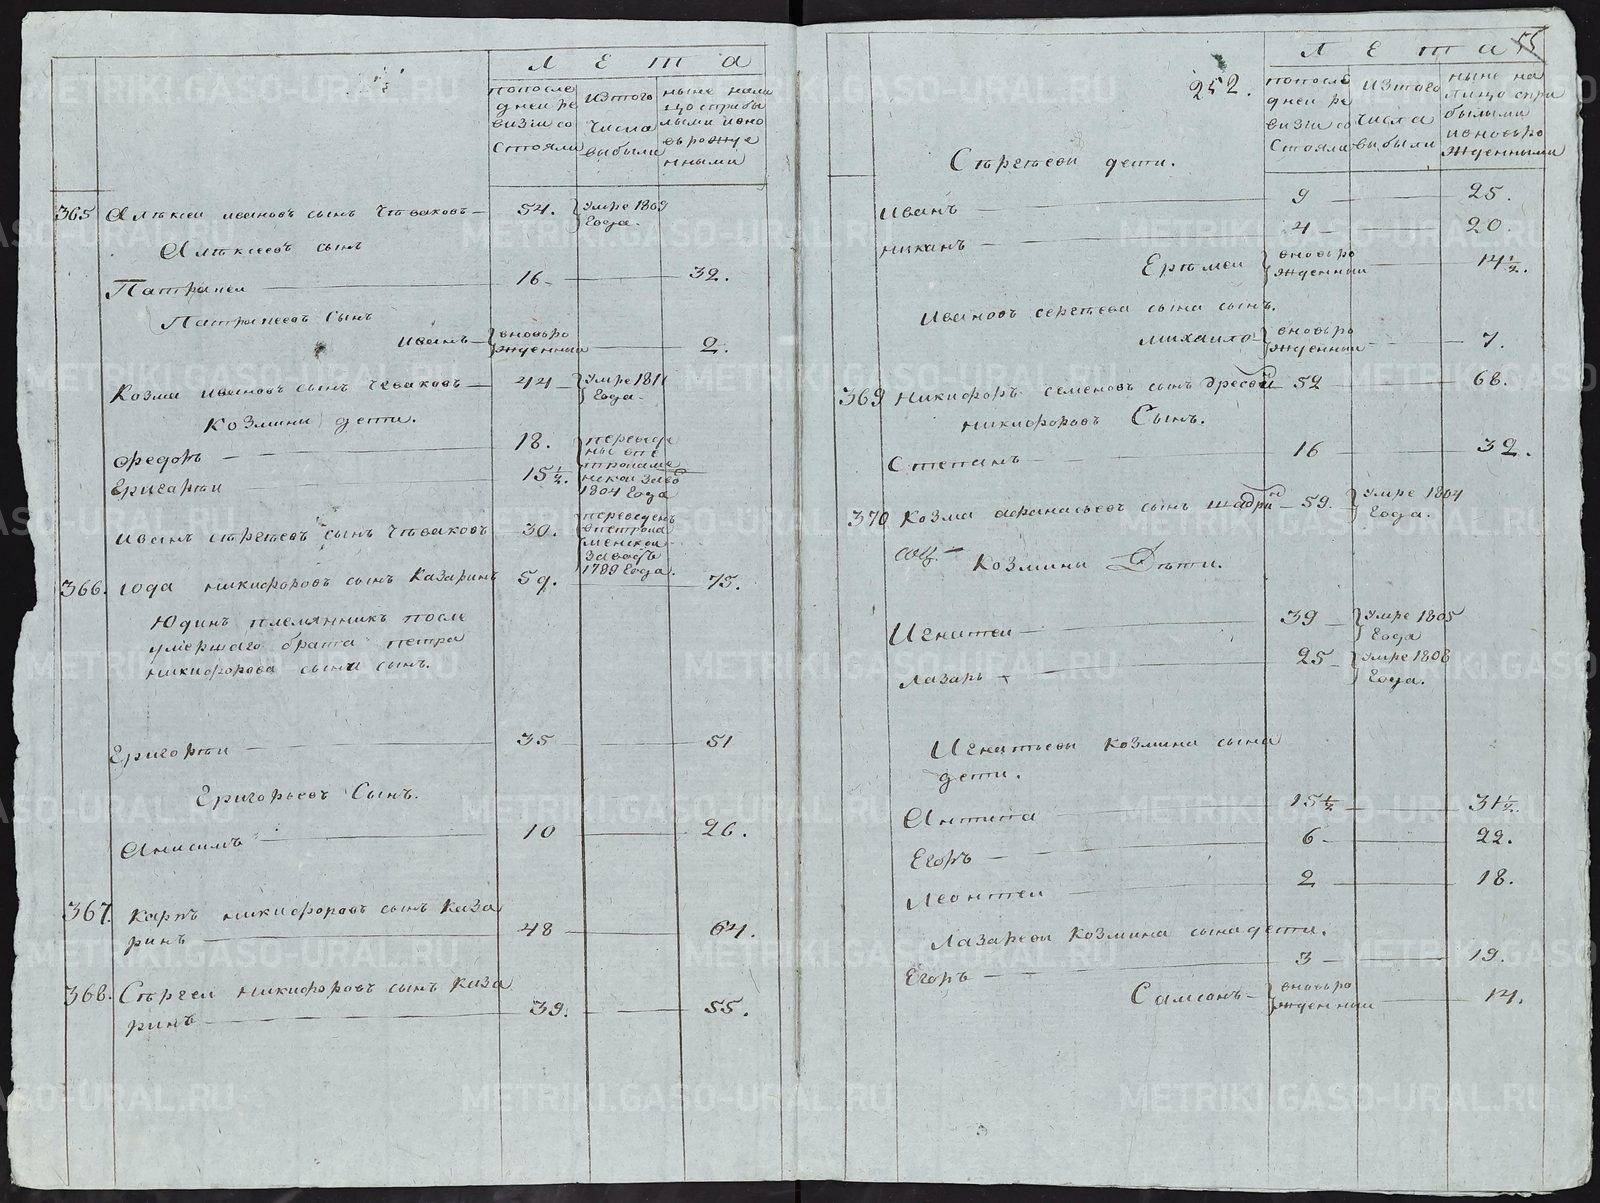 Л Е т а
попосле
дней ре
визии со
стояли
изтого
числа
выбыли
ныне нали
цо сприбы
лыми ивно
ворожде
нными
365 Алѣксеи ивановъ сынъ Чеваковъ — 54. умре 1809
Года.
Алѣксеевъ сынъ
Патрикеи — 16 — 32.
Патрикеевъ Сынъ
иванъ — вновьро
жденныи — 2.
Козма ивановъ сынъ Чеваковъ — 44 — умре 1811
Года.
Козмины дети.
Федотъ — 18.
Григореи — 15 ½.
1804 Года
иванъ сѣргѣевъ сынъ Чеваковъ — 30. переведенъ
Заводъ
1799 Года.
366. юда никифоровъ сынъ Казаринъ 59. — 75.
Юдинъ племянникъ после
умершаго брата петра
никифорова сына сынъ.
Григореи — 35 — 51
Григорьевъ Сынъ.
Анисимъ — 10 — 26.
367. Карпъ никифоровъ сынъ Каза
ринъ — 48 — 64.
368. Сѣргеи никифоровъ сынъ Каза
ринъ — 39. — 55.
Л Е т а 55
252.
попосле
дней ре
визии со
стояли
изтого
числа
выбыли
ныне на
лицо спри
былыми
ивновьро
жденными
Сѣргѣевы дети.
иванъ — 9 — 25.
никанъ — 4 — 20.
Ерѣмеи вновьро
жденныи — 14 ½.
Ивановъ сергѣева сына сынъ.
михаило вновьро
жденныи — 7.
369 Никифоръ семеновъ сынъ Дресвян 52 — 68.
никифоровъ Сынъ.
Степанъ — 16 — 32.
370 Козма афанасьевъ сынъ шадрин — 59. умре 1804
Года.
Козмины Дѣти.
Игнатеи — 39 — умре 1805
Года
Лазарь — 25 — умре 1808
Года.
Игнатьевы Козмина сына
дети.
Антипа — 15 ½ — 31 ½.
Егоръ — 6 — 22.
Леонтеи — 2 — 18.
Лазаревы Козмина сына дети.
Егоръ — 3 — 19.
Самсонъ — вновьро
жденныи — 14.